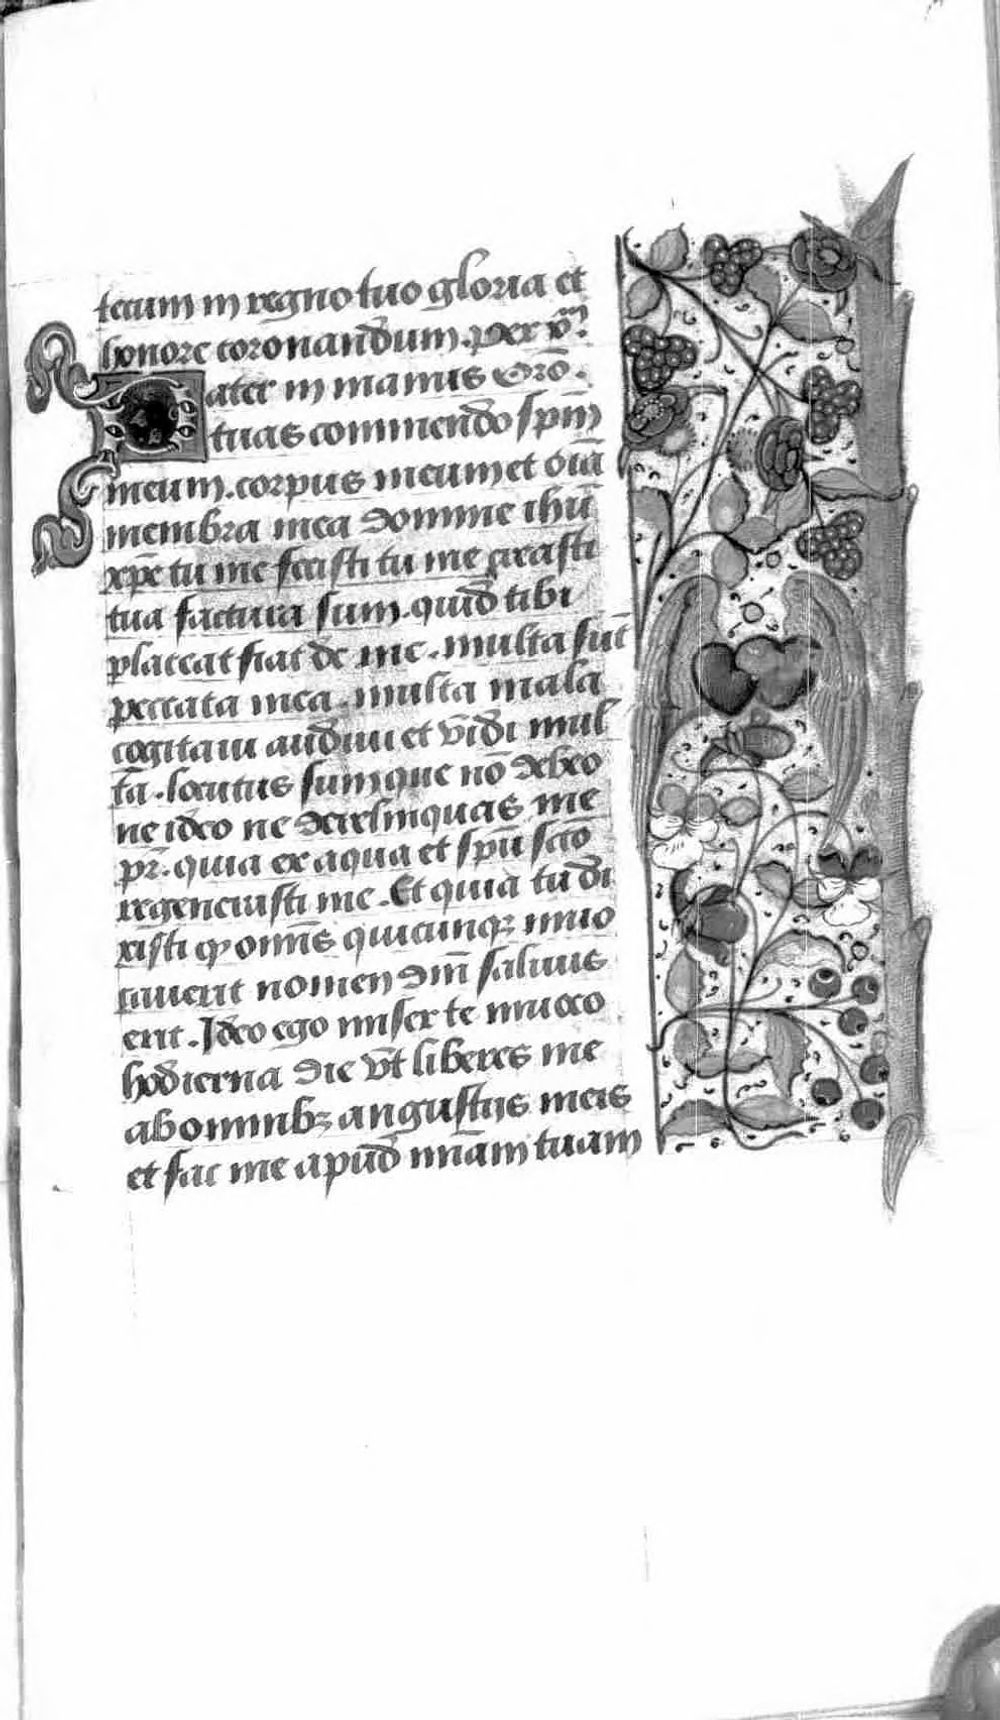 tecum in regno tuo gloria et
honore coronandum. per xp̄m.
Pater in manus Orō.
tuas commendo spm̄
meum. corpus meum et oīa
membra mea domine ihū
xpē tu me fecisti tu me creasti
tua factura sum. quid tibi
placeat fiat de me. multa sūt
peccata mea. multa mala
cogitaui audiui et vidi mul
ta. locutus sum que nō debeo
ne ideo ne derelinquas me
pr̄. quia ex aqua et spū scō
regenerasti me. Et quia tu di
xisti qɂ omēs quicunqꝫ inuo
cauerit nomen dnī saluus
erit. Ideo ego miser te inuoco
hodierna die vt liberes me
ab omnibꝫ angustijs meis
et fac me apud mīam tuam